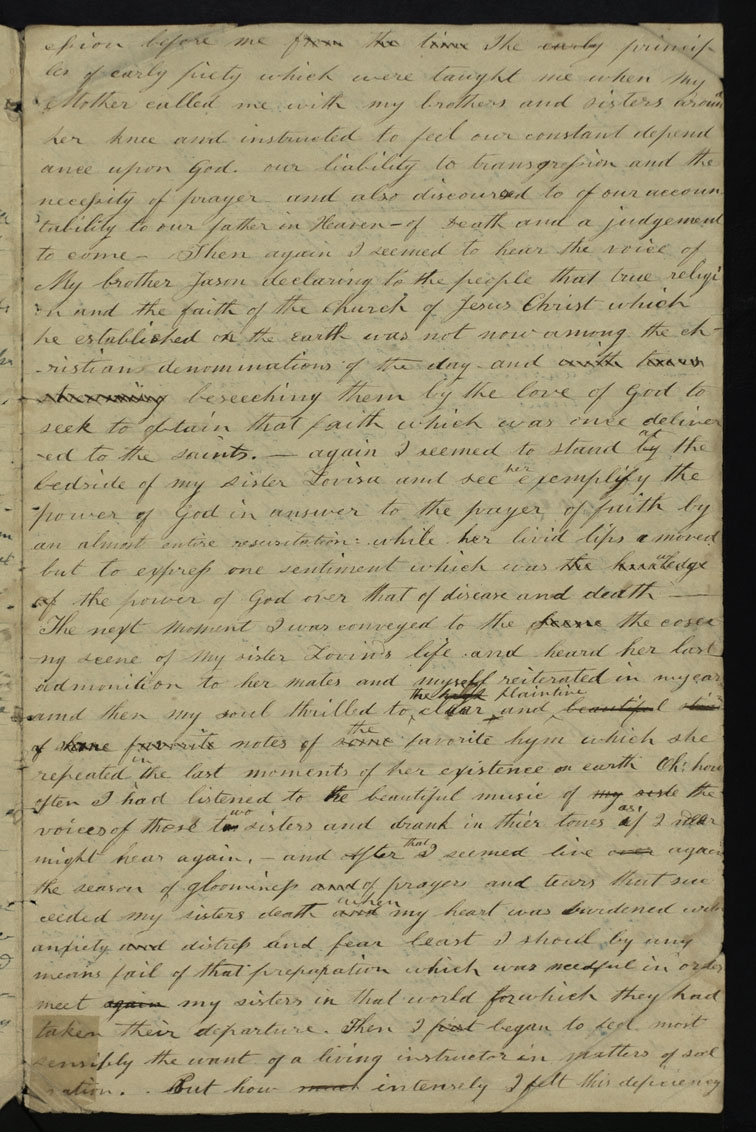 ession before me from the time The early princip
les of early piety which were taught me when my
Mother called me with my brothers and sisters around
her knee and instructed to feel our constant depend
ance upon God. our liability to transgression and the
necessity of prayer and also discoursed to of our accoun
tability to our father in Heaven - of Death and a judgement
to come - Then again I seemed to hear the voice of
My brother Jason declaring to the people that true religi
n and the faith of the church of Jesus Christ which
he established on the earth was not now among the ch-
-ristian denominations of the day and with
beseeching them by the love of God to
seek to obtain that faith which was once deliver
-ed to the saints. — again I seemed to stand at by the
bedside of my sister Lovisa and see her exemplify the
power of God in answer to the prayer of faith by
an almost entire resusitation: while her livid lips moved
but to express one sentiment which was the knowledge
of the power of God over that of disease and death —
The next moment I was conveyed to the the cosei
-ng scene of My sister Lovina's life and heard her last
admonition to her mates and myself reiterated in my ear
and then my soul thrilled to the clear and plaintive beautiful
of some favorite notes of the some favorite hym which she
repeated in the last moments of her existence on earth Oh: how
often I had listened to the beautiful music of my the
voices of those two sisters and drank in thier tones as if I
might hear again. - and after that I seemed live over again
the season of gloominess and of prayers and tears that suc
ceeded my sisters death and when my heart was burdened with
anxiety and distress and fear least I shoud by any
means fail of that preparation which was needful in order
meet again my sisters in that world for which they had
taken their departure. Then I first began to feel most
sensibly the want of a living instructor in matters of sal
vation. But how much intensely I felt this deficiency